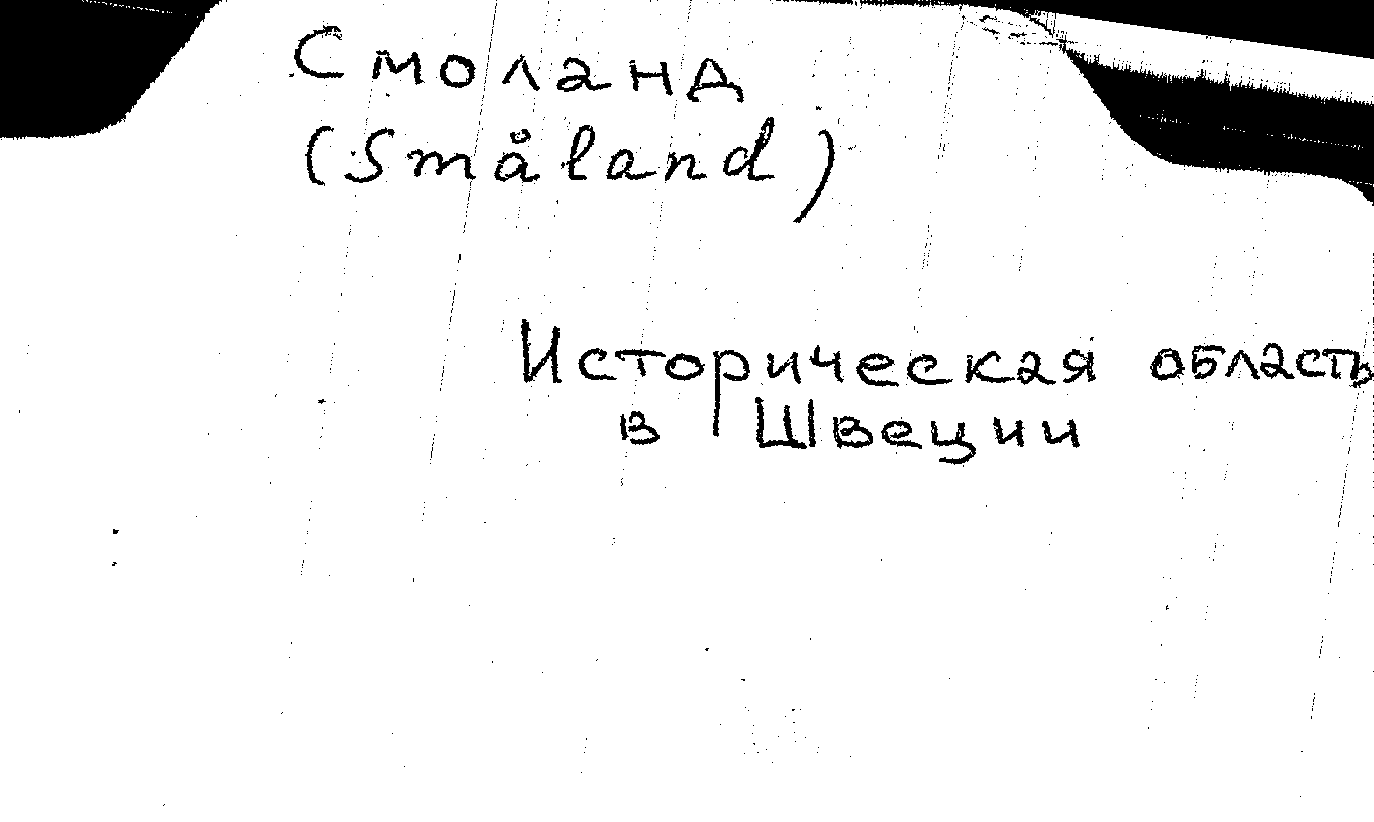 Смоланд
(Småland)
Историческая область
в Швеции